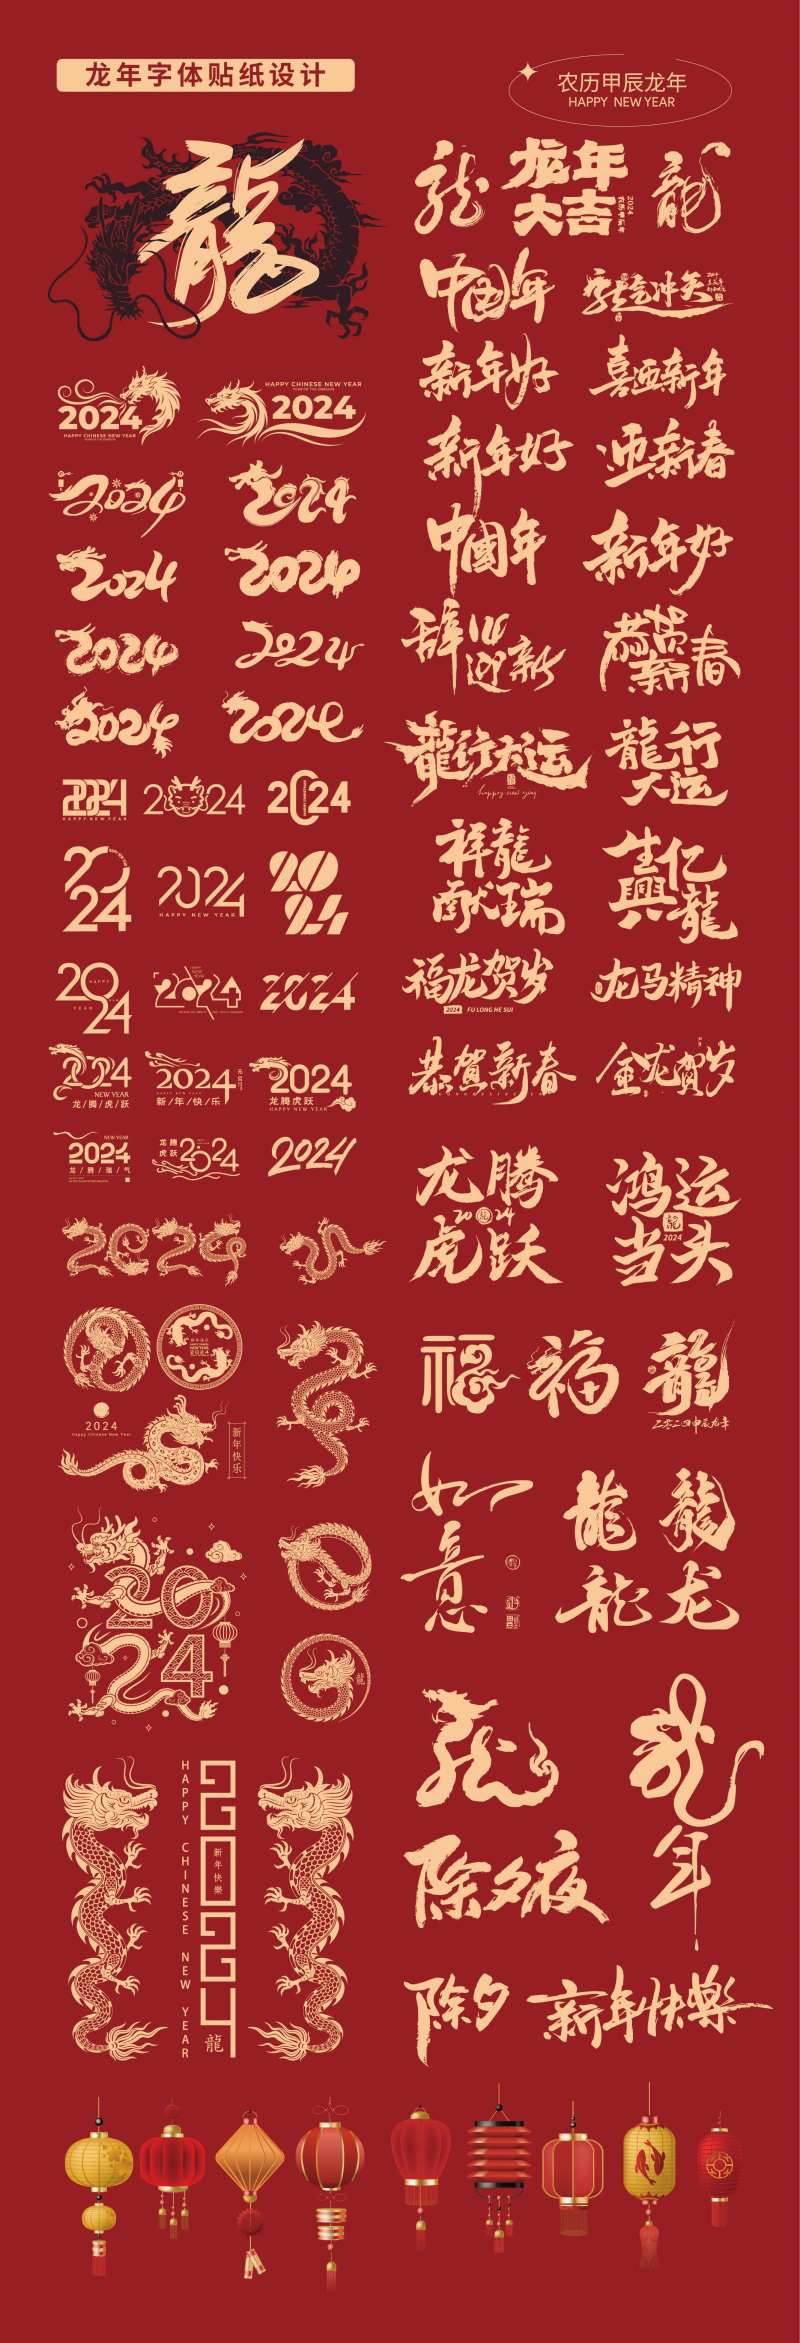 龙年字体贴纸设计
农历甲辰龙年
HAPPY NEW YEAR
龍
龙
龙年
大吉
2024
农历甲辰年
龍
中国年
龍气冲天
新年好
喜迎新年
新年好
迎新春
中國年
新年好
辞旧
迎新
恭贺
新春
龍行大运
happy new year
龍行
大运
祥龍
献瑞
生亿
興龍
福龙贺岁
2024 FU LONG HE SUI
龙马精神
恭贺新春
金龙贺岁
龙腾
2024
虎跃
鸿运
当头
龍
2024
福
福
龍
二零二四甲辰龙年
如
意
龍
龍
龍
龙
龙
龙
年
除夕夜
除夕
新年快樂
2024
HAPPY CHINESE NEW YEAR
HAPPY CHINESE NEW YEAR
YEAR OF THE DRAGON
2024
2024
2024
2024
2024
2024
2024
2024
2024
2024
HAPPY NEW YEAR
2024
2024
2024
2024
HAPPY NEW YEAR
2024
2024
HAPPY
YEAR
2024
2024
2024
NEW YEAR
龙/腾/虎/跃
2024
新/年/快/乐
2024
龙腾虎跃
HAPPY NEW YEAR
NEW YEAR
2024
龙/腾/瑞/气
龙腾
虎跃
2024
2024
2024
2024
Happy Chinese New Year
新年快乐
2024
龍
HAPPY CHINESE NEW YEAR
2024
新年快樂
龍